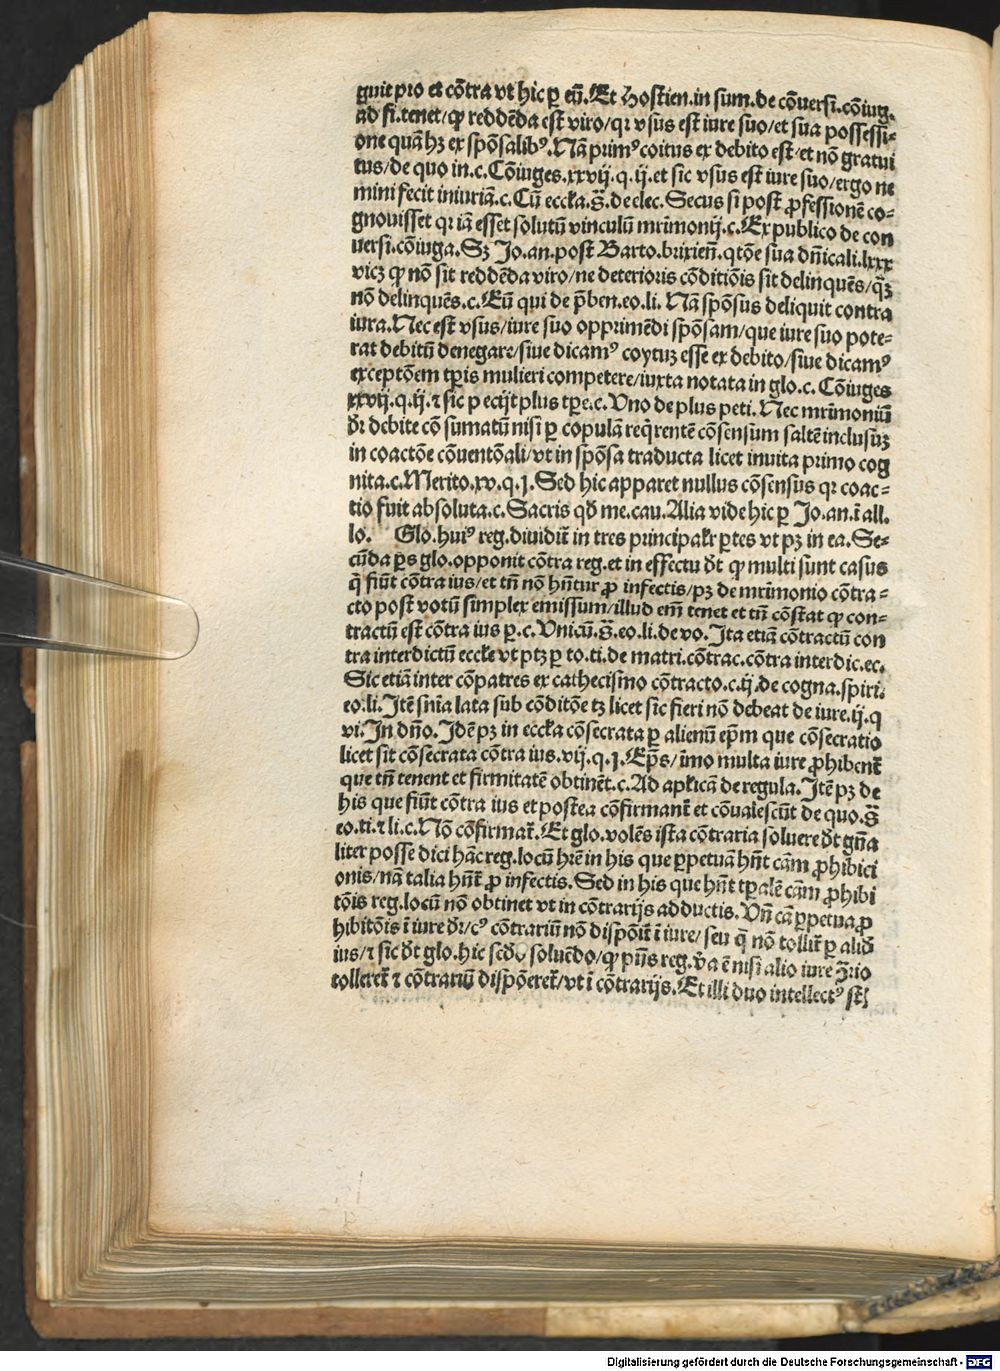 guit pro et cōtra vt hic ꝑ eū. Et Hostien. in sum. de cōuersi. cōiug.
ad fi. tenet/ꝙ reddēda est viro/qꝛ vsus est iure suo/et sua possessi-
one quā hꝫ ex spōsalibꝰ. Nā primꝰ coitus ex debito est/et nō gratui
tus/de quo in. c. Cōiuges. xxvij. q. ij. et sic vsus est iure suo/ergo ne
mini fecit iniuriā. c. Cū eccl̄a. §. de elec. Secus si post ꝓfessionē co-
gnouisset qꝛ iā esset solutū vinculū mr̄imonij. c. Ex publico de con
uersi. cōiuga. Sꝫ Jo. an. post Barto. brixien̄. qtōe sua dn̄icali. lxxx
vicꝫ ꝙ nō sit reddēda viro/ne deterioris cōditiōis sit delinquēs/q̄ꝫ
nō delinquēs. c. Eū qui de p̄ben. eo. li. Nā spōsus deliquit contra
iura. Nec est vsus/iure suo opprimēdi spōsam/que iure suo pote-
rat debitū denegare/siue dicamꝰ coytuꝫ esse ex debito/siue dicamꝰ
exceptōem tꝑis mulieri competere/iuxta notata in glo. c. Cōiuges
xxvij. q. ij. ⁊ sic p ecijt plus tꝑe. c. Vno de plus peti. Nec mr̄imoniū
dr̄ debite cō sumatū nisi ꝑ copulā reqͥrentē cōsensum saltē inclusuꝫ
in coactōe cōuentōali/vt in spōsa traducta licet inuita primo cog
nita. c. Merito. xv. q. j. Sed hic apparet nullus cōsensus qꝛ coac-
tio fuit absoluta. c. Sacris qd̄ me. cau. Alia vide hic ꝑ Jo. an. ī all.
lo. Glo. huiꝰ reg. diuidit̄ in tres principalr̄ ꝑtes vt pꝫ in ea. Se-
cūda ꝑs glo. opponit cōtra reg. et in effectu dt̄ ꝙ multi sunt casus
q̄ fiūt cōtra ius/et tn̄ nō hn̄tur ꝓ infectis/pꝫ de mr̄imonio cōtra-
cto post votū simplex emissum/illud em̄ tenet et tn̄ cōstat ꝙ con-
tractū est cōtra ius ꝑ. c. Vnicū. §. eo. li. de vo. Ita etiā cōtractū con
tra interdictū eccl̄e vt ptꝫ ꝑ to. ti. de matri. cōtrac. cōtra interdic. ec.
Sic etiā inter cōpatres ex cathecismo cōtracto. c. ij. de cogna. spiri.
eo. li. Itē sn̄ia lata sub cōditōe tꝫ licet sic fieri nō debeat de iure. ij. q
vi. In dn̄o. Idē pꝫ in eccl̄a cōsecrata ꝑ alienū ep̄m que cōsecratio
licet sit cōsecrata cōtra ius. vij. q. j. Ep̄s/imo multa iure ꝓhibent̄
que tn̄ tenent et firmitatē obtinēt. c. Ad apl̄icā de regula. Itē pꝫ de
his que fiūt cōtra ius et postea cōfirmant̄ et cōualescūt de quo. §
eo. ti. ⁊ li. c. Nō cōfirmat̄. Et glo. volēs ista cōtraria soluere dt̄ gn̄a
liter posse dici hāc reg. locū hr̄e in his que ꝑpetuā hn̄t cām ꝓhibici
onis/nā talia hn̄t̄ ꝓ infectis. Sed in his que hn̄t tꝑalē cām ꝓhibi
tōis reg. locū nō obtinet vt in cōtrarijs adductis. Vn̄ cā ꝑpetua ꝓ
hibitōis ī iure dr̄/cꝰ cōtrariū nō dispōit̄ ī iure/seu q̄ nō tollit̄ ꝑ aliḋ
ius/⁊ sic dt̄ glo. hic soluēdo/ꝙ pn̄s reg. v̄a ē nisi alio iure
tolleret̄ ⁊ cōtrariū dispōeret̄/vt ī cōtrarijs. Et illi duo intellectꝰ st̄
Digitalisierung gefördert durch die Deutsche Forschungsgemeinschaft - DFG